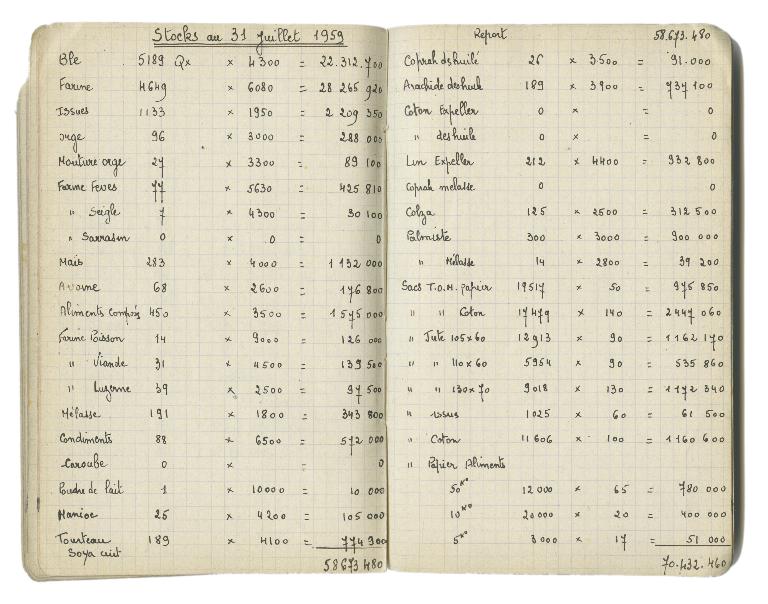 Stocks au 31 Juillet 1959
Blé 5189 Qx × 4300 = 22.312.700
Farine 4649 × 6080 = 28 265 920
Issues 1133 × 1950 = 2 209 350
orge 96 × 3000 = 288 000
Mouture orge 27 × 3300 = 89 100
Farine Feves 77 × 5630 = 425 810
" Seigle 7 × 4300 = 30 100
" Sarrasin 0 × 0 = 0
Maïs 283 × 4000 = 1 132 000
Avoine 68 × 2600 = 176 800
Aliments Composés 450 × 3500 = 1 575 000
Farine Poisson 14 × 9000 = 126 000
" Viande 31 × 4500 = 139 500
" Luzerne 39 × 2500 = 97 500
Mélasse 191 × 1800 = 343 800
Condiments 88 × 6500 = 572 000
Caroube 0 × = 0
Poudre de lait 1 × 10000 = 10 000
Manioc 25 × 4200 = 105 000
Tourteau 189 × 4100 = 774 900
Soya cuit
58 673 480
Report 58.673.480
Coprah deshuilé 26 × 3500 = 91.000
Arachide deshuilé 189 × 3900 = 737 100
Coton Expeller 0 × = 0
" deshuilé 0 × = 0
Lin Expeller 212 × 4400 = 932 800
Coprah melasse 0 0
Colza 125 × 2500 = 312 500
Palmiste 300 × 3000 = 900 000
" Mélasse 14 × 2800 = 39 200
Sacs T.O.M. papier 19517 × 50 = 975 850
" " Coton 17479 × 140 = 2447 060
" Jute 105×60 12913 × 90 = 1162 170
" " 110×60 5954 × 90 = 535 860
" " 130×70 9018 × 130 = 1172 340
" issus 1025 × 60 = 61 500
" Coton 11606 × 100 = 1160 600
" Papier Aliments
50 Ko 12 000 × 65 = 780 000
10 Ko 20000 × 20 = 400 000
5 Ko 3000 × 17 = 51 000
70.432.460